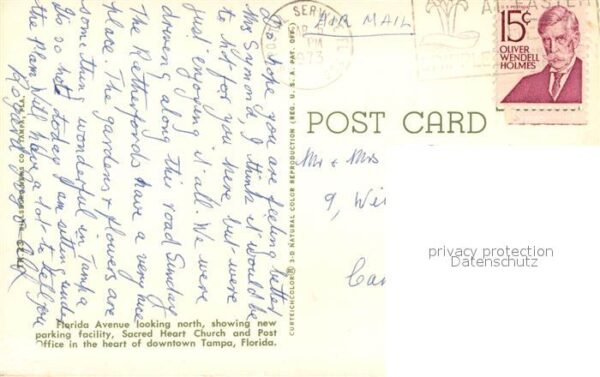 Do hope you are feeling better
Mrs Symonds I think it would be
to hot for you here, but were
just enjoying it all. We were
driving along this road Sunday
The Rutherfords have a very nice
place. The gardens & flowers are
something wonderful in Tampa
Its so hot today I am sitting under
the Plam. Will have a lot to tell you
POST CARD
SERVICE
PM
1973
AIR MAIL
15¢
OLIVER
WENDELL
HOLMES
Mr & Mrs
9, Wi
privacy protection
Datenschutz
CURTEICHCOLOR® 3-D NATURAL COLOR REPRODUCTION (REG. U.S.A. PAT. OFF.)
Florida Avenue looking north, showing new
parking facility, Sacred Heart Church and Post
Office in the heart of downtown Tampa, Florida.